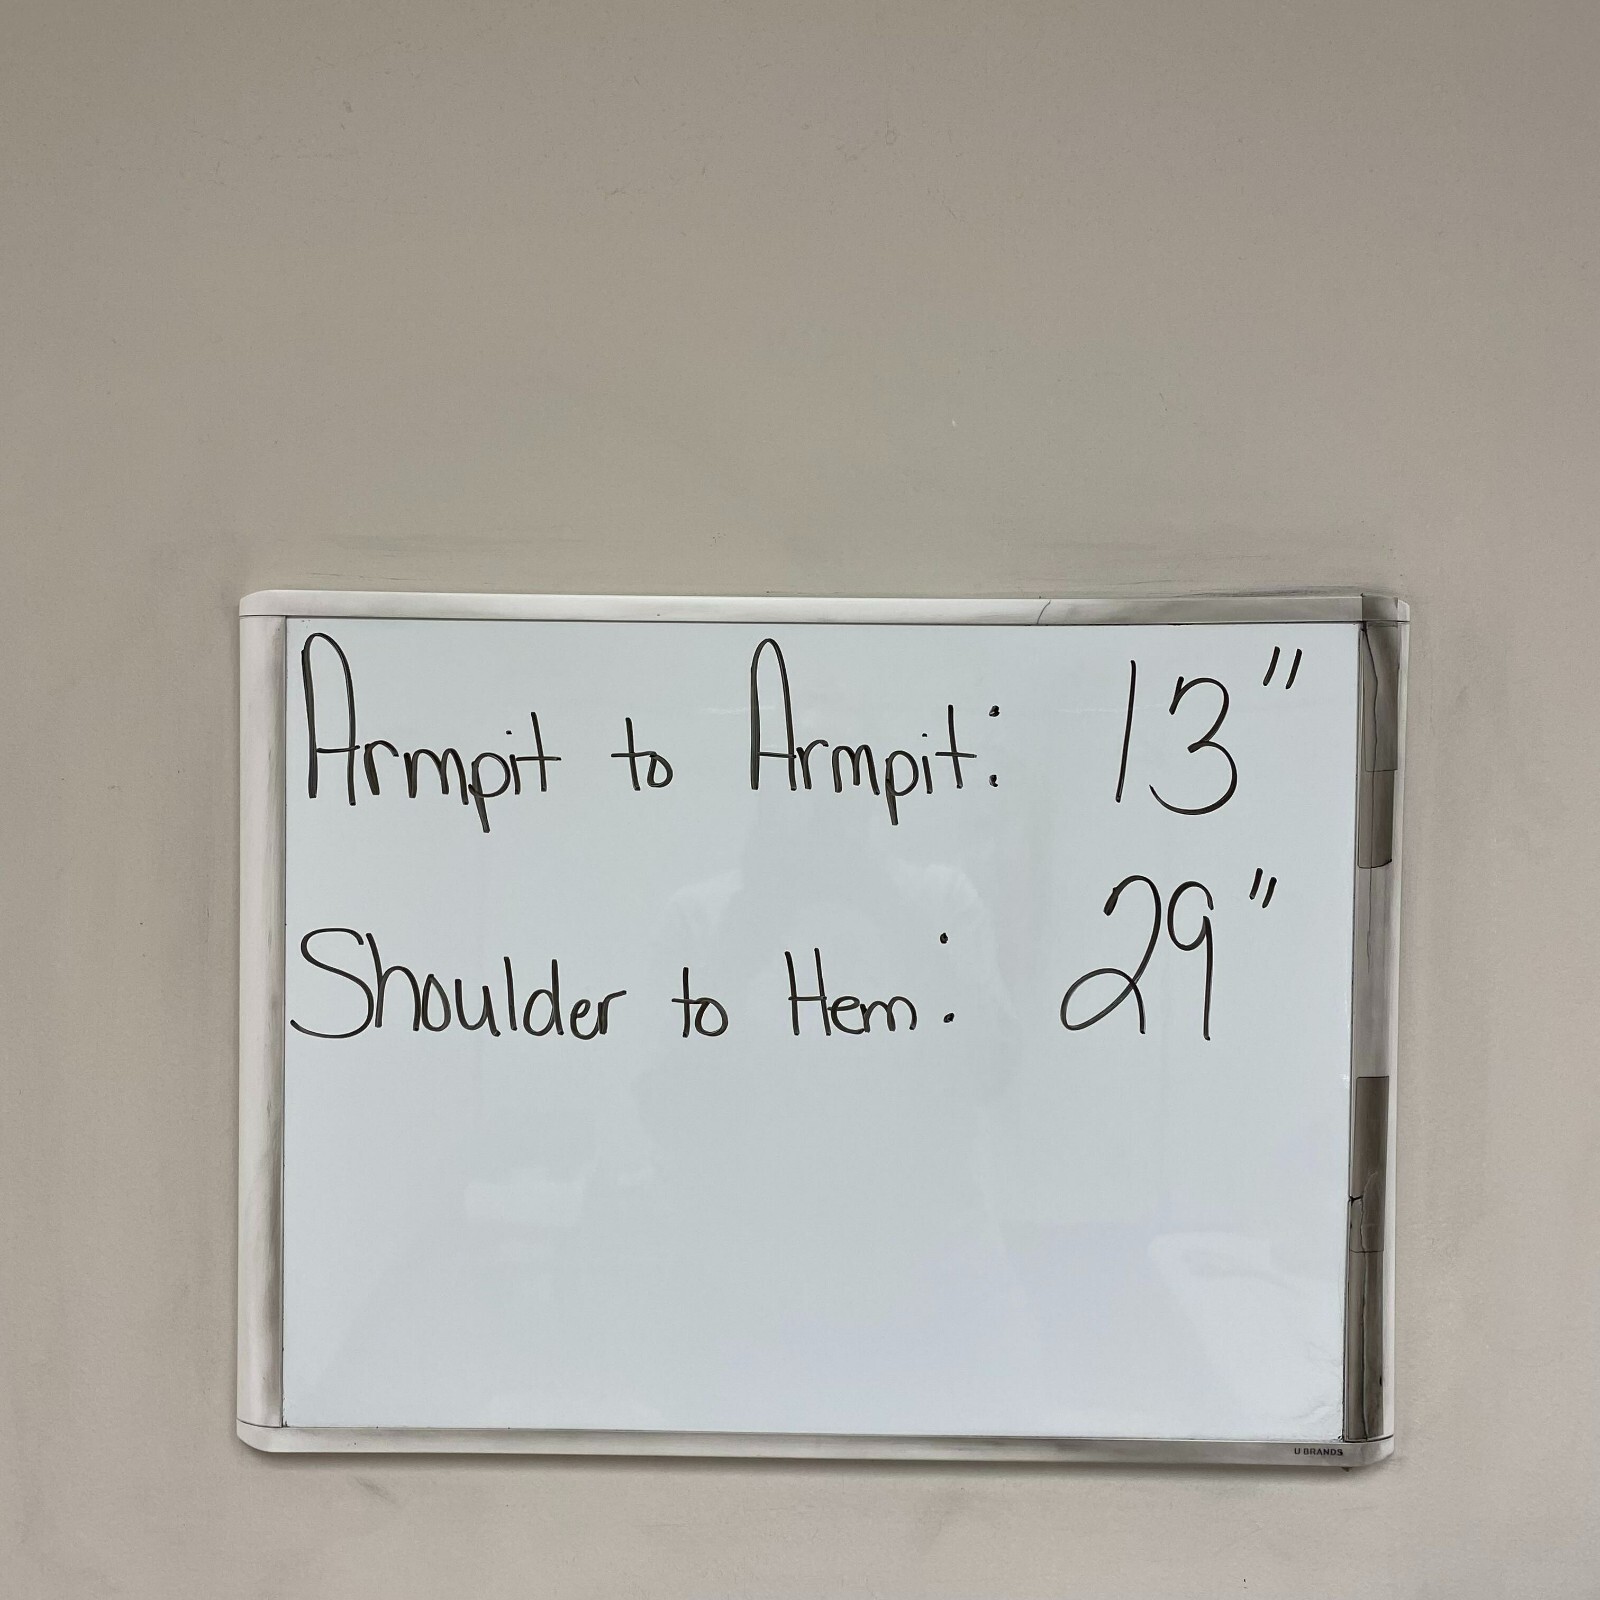 Armpit to Armpit: 13"
Shoulder to Hem: 29"
U BRANDS